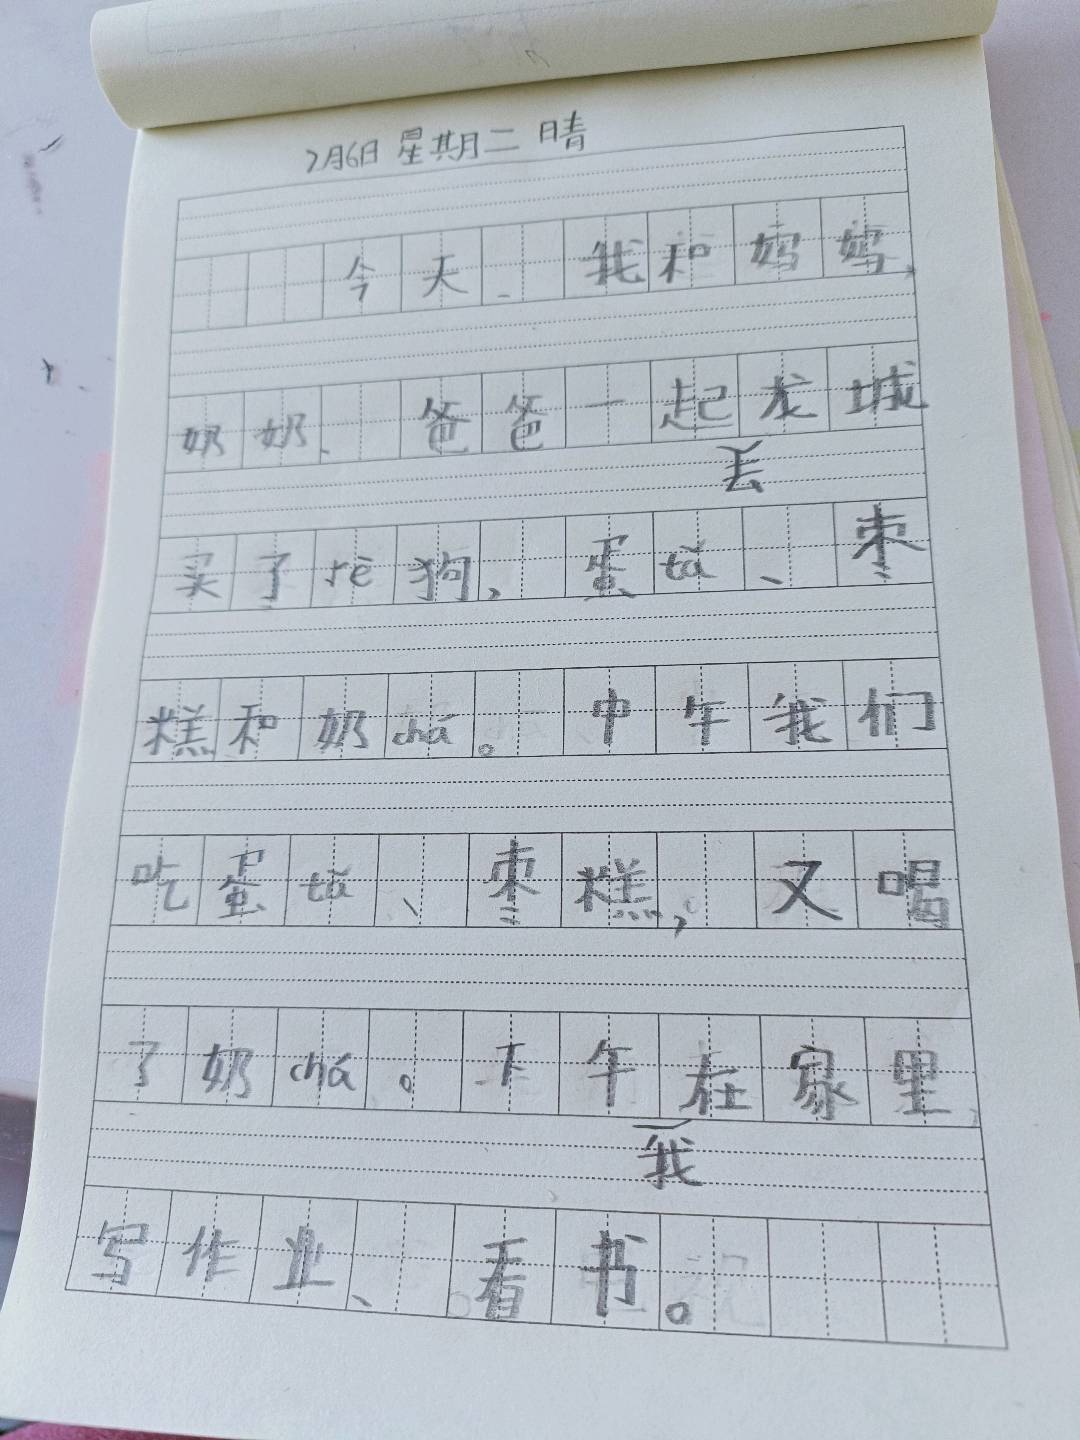 7月6日 星期二 晴
今天、我和妈妈、
奶奶、爸爸一起龙城
去
买了rè狗，蛋tǎ、枣
糕和奶chá。中午我们
吃蛋tǎ、枣糕，又喝
了奶chá。下午在家里
我
写作业、看书。